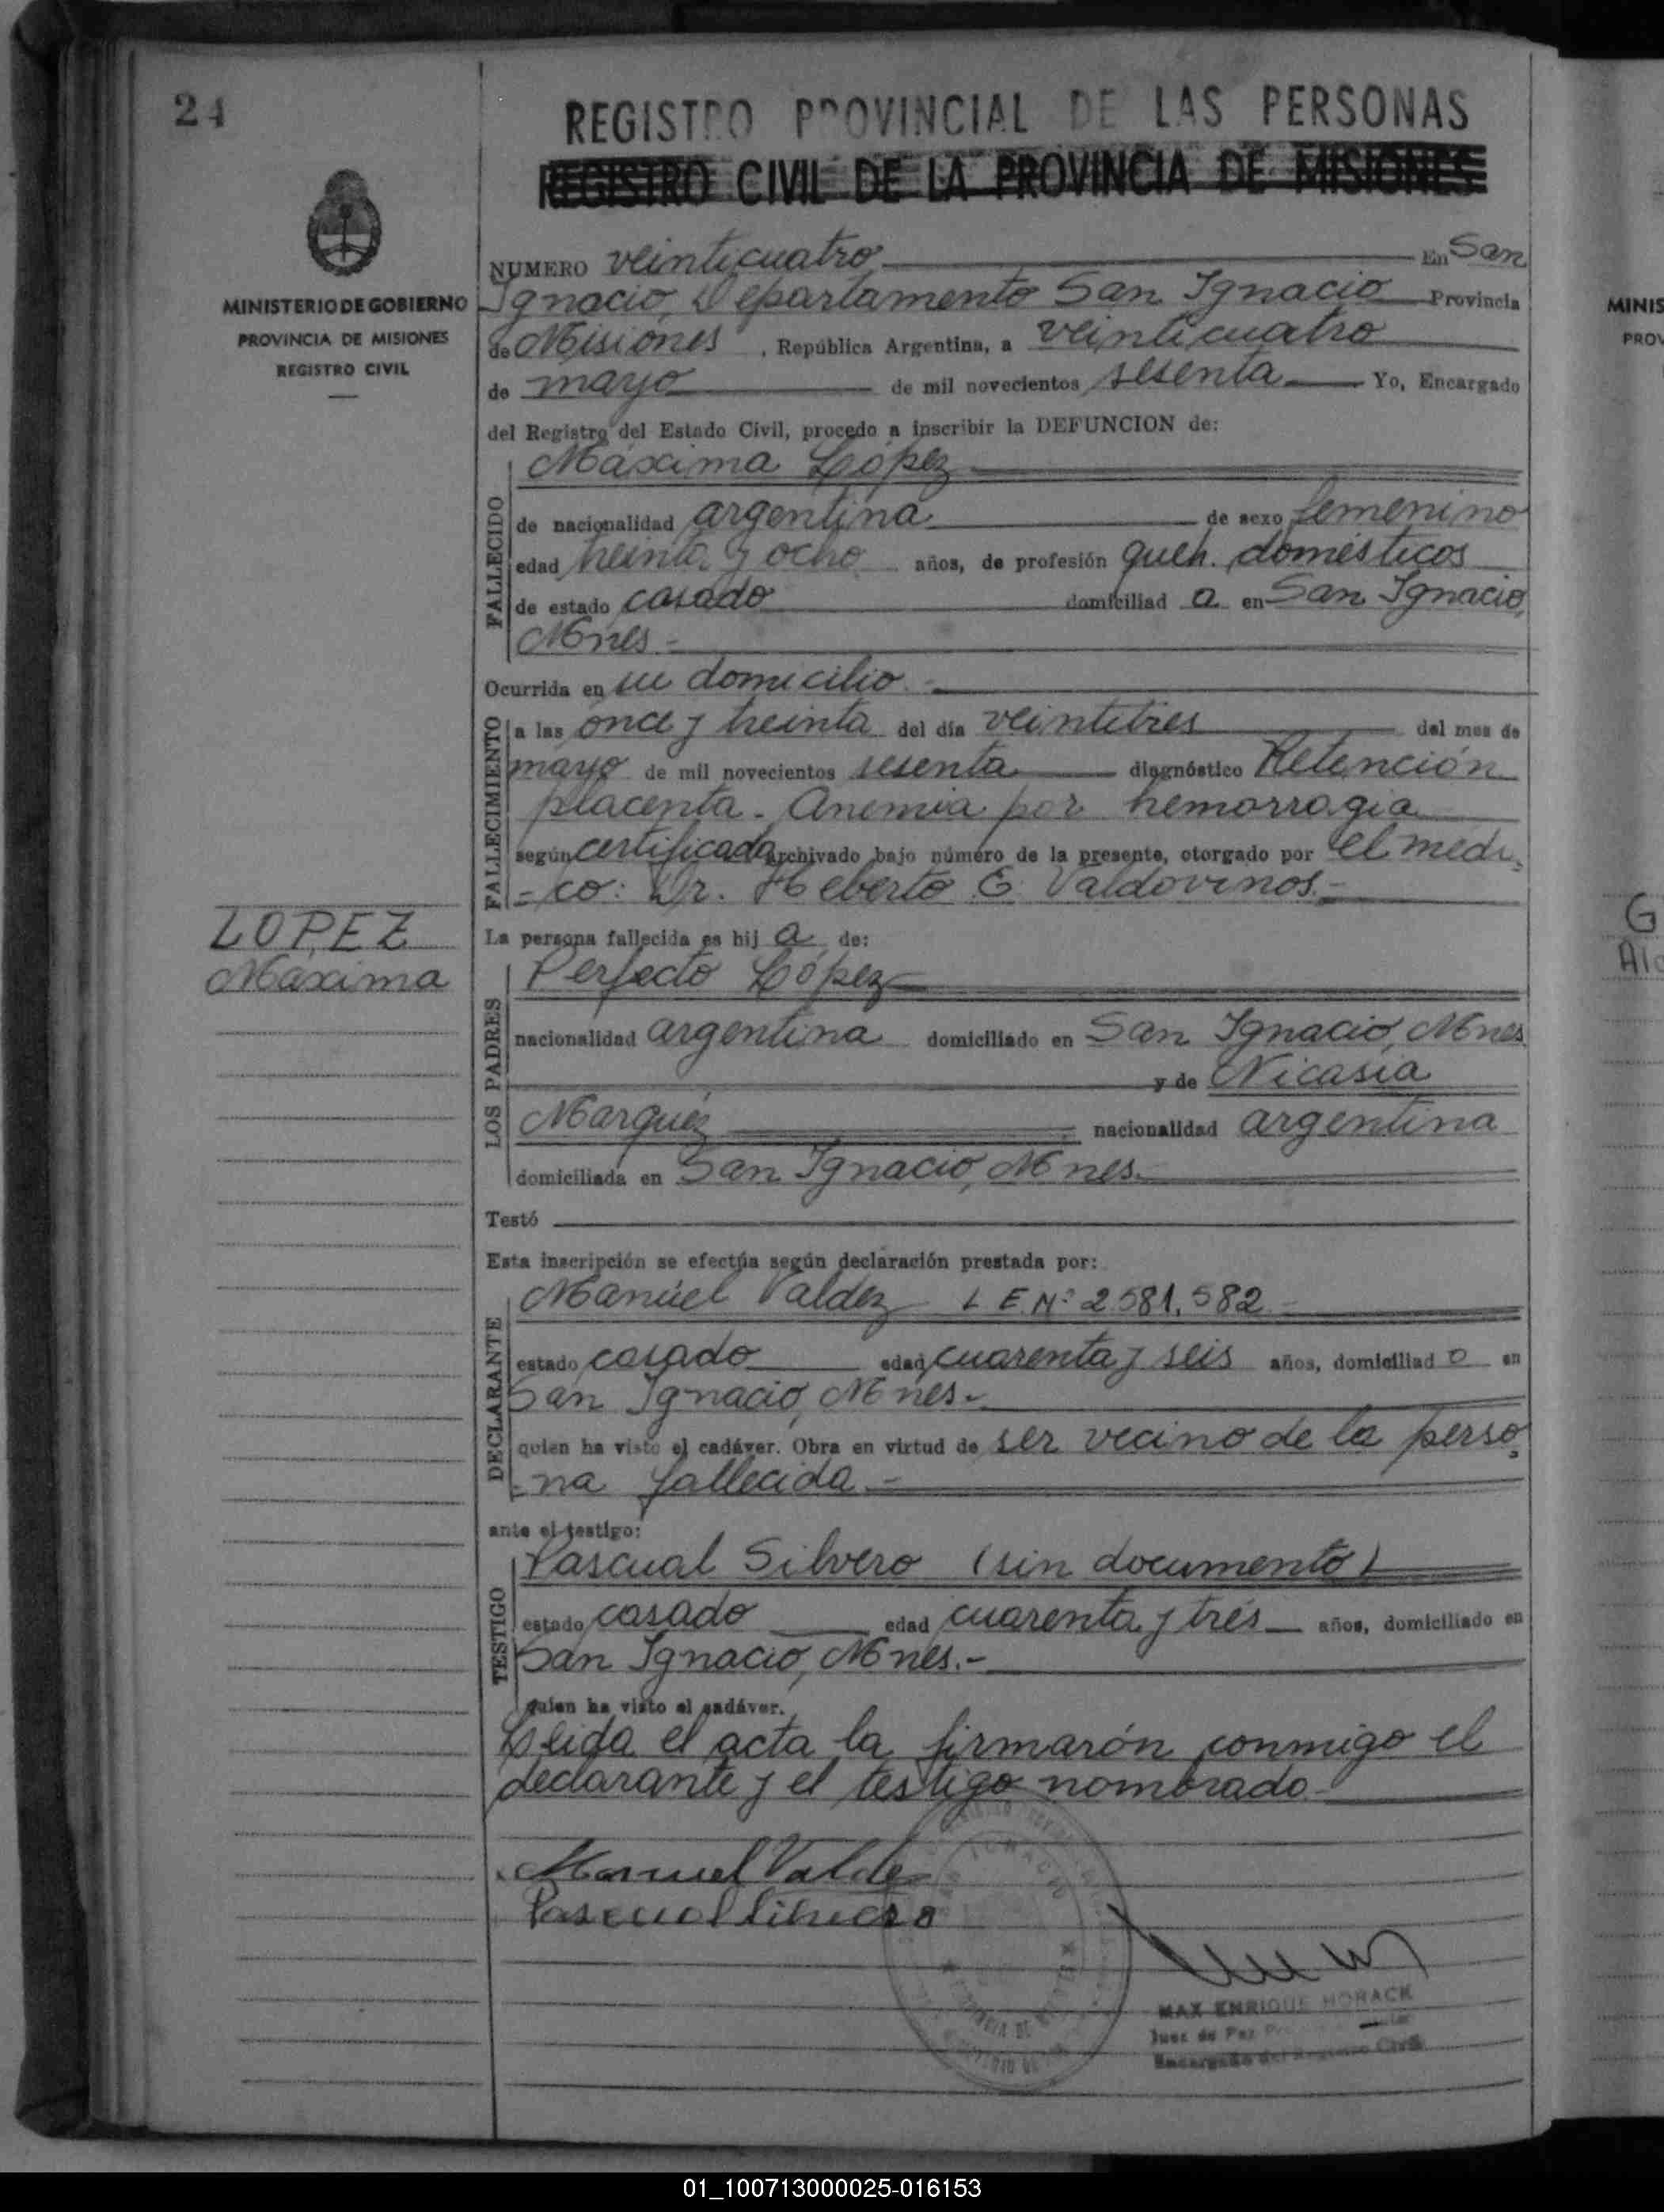 24
REGISTRO PROVINCIAL DE LAS PERSONAS
REGISTRO CIVIL DE LA PROVINCIA DE MISIONES
MINISTERIO DE GOBIERNO
PROVINCIA DE MISIONES
REGISTRO CIVIL
NUMERO veinticuatro En San
Ignacio, Departamento San Ignacio Provincia
de Misiones, República Argentina, a veinticuatro
de mayo de mil novecientos sesenta Yo, Encargado
del Registro del Estado Civil, procedo a inscribir la DEFUNCION de:
FALLECIDO
Máxima López
de nacionalidad argentina de sexo femenino
edad treinta y ocho años, de profesión queh. domésticos
de estado casado domiciliad a en San Ignacio,
Mnes.-
Ocurrida en su domicilio.-
FALLECIMIENTO
a las once y treinta del día veintitres del mes de
mayo de mil novecientos sesenta diagnóstico Retención
placenta. Anemia por hemorragia
según certificado archivado bajo número de la presente, otorgado por el medi-
-co: Dr. Heberto E. Valdovinos.-
LOPEZ
Maxima
La persona fallecida es hij a de:
LOS PADRES
Perfecto López
nacionalidad argentina domiciliado en San Ignacio, Mnes
y de Nicasia
Marquez nacionalidad argentina
domiciliada en San Ignacio, Mnes.
Testó
Esta inscripción se efectúa según declaración prestada por:
DECLARANTE
Manuel Valdez L E.Nº 2.581.582.-
estado casado edad cuarenta y seis años, domiciliad o en
San Ignacio, Mnes.-
quien ha visto el cadáver. Obra en virtud de ser vecino de la perso-
-na fallecida.-
ante el testigo:
TESTIGO
Pascual Silvero (sin documento)
estado casado edad cuarenta y trés años, domiciliado en
San Ignacio, Mnes.-
quien ha visto el cadáver.
Leida el acta la firmarón conmigo el
declarante y el testigo nombrado.-
Manuel Valdez
Pascual Silvero
MAX ENRIQUE HORACK
Juez de Paz
Encargado del Registro Civil
MINIS
PROV
G
01_100713000025-016153